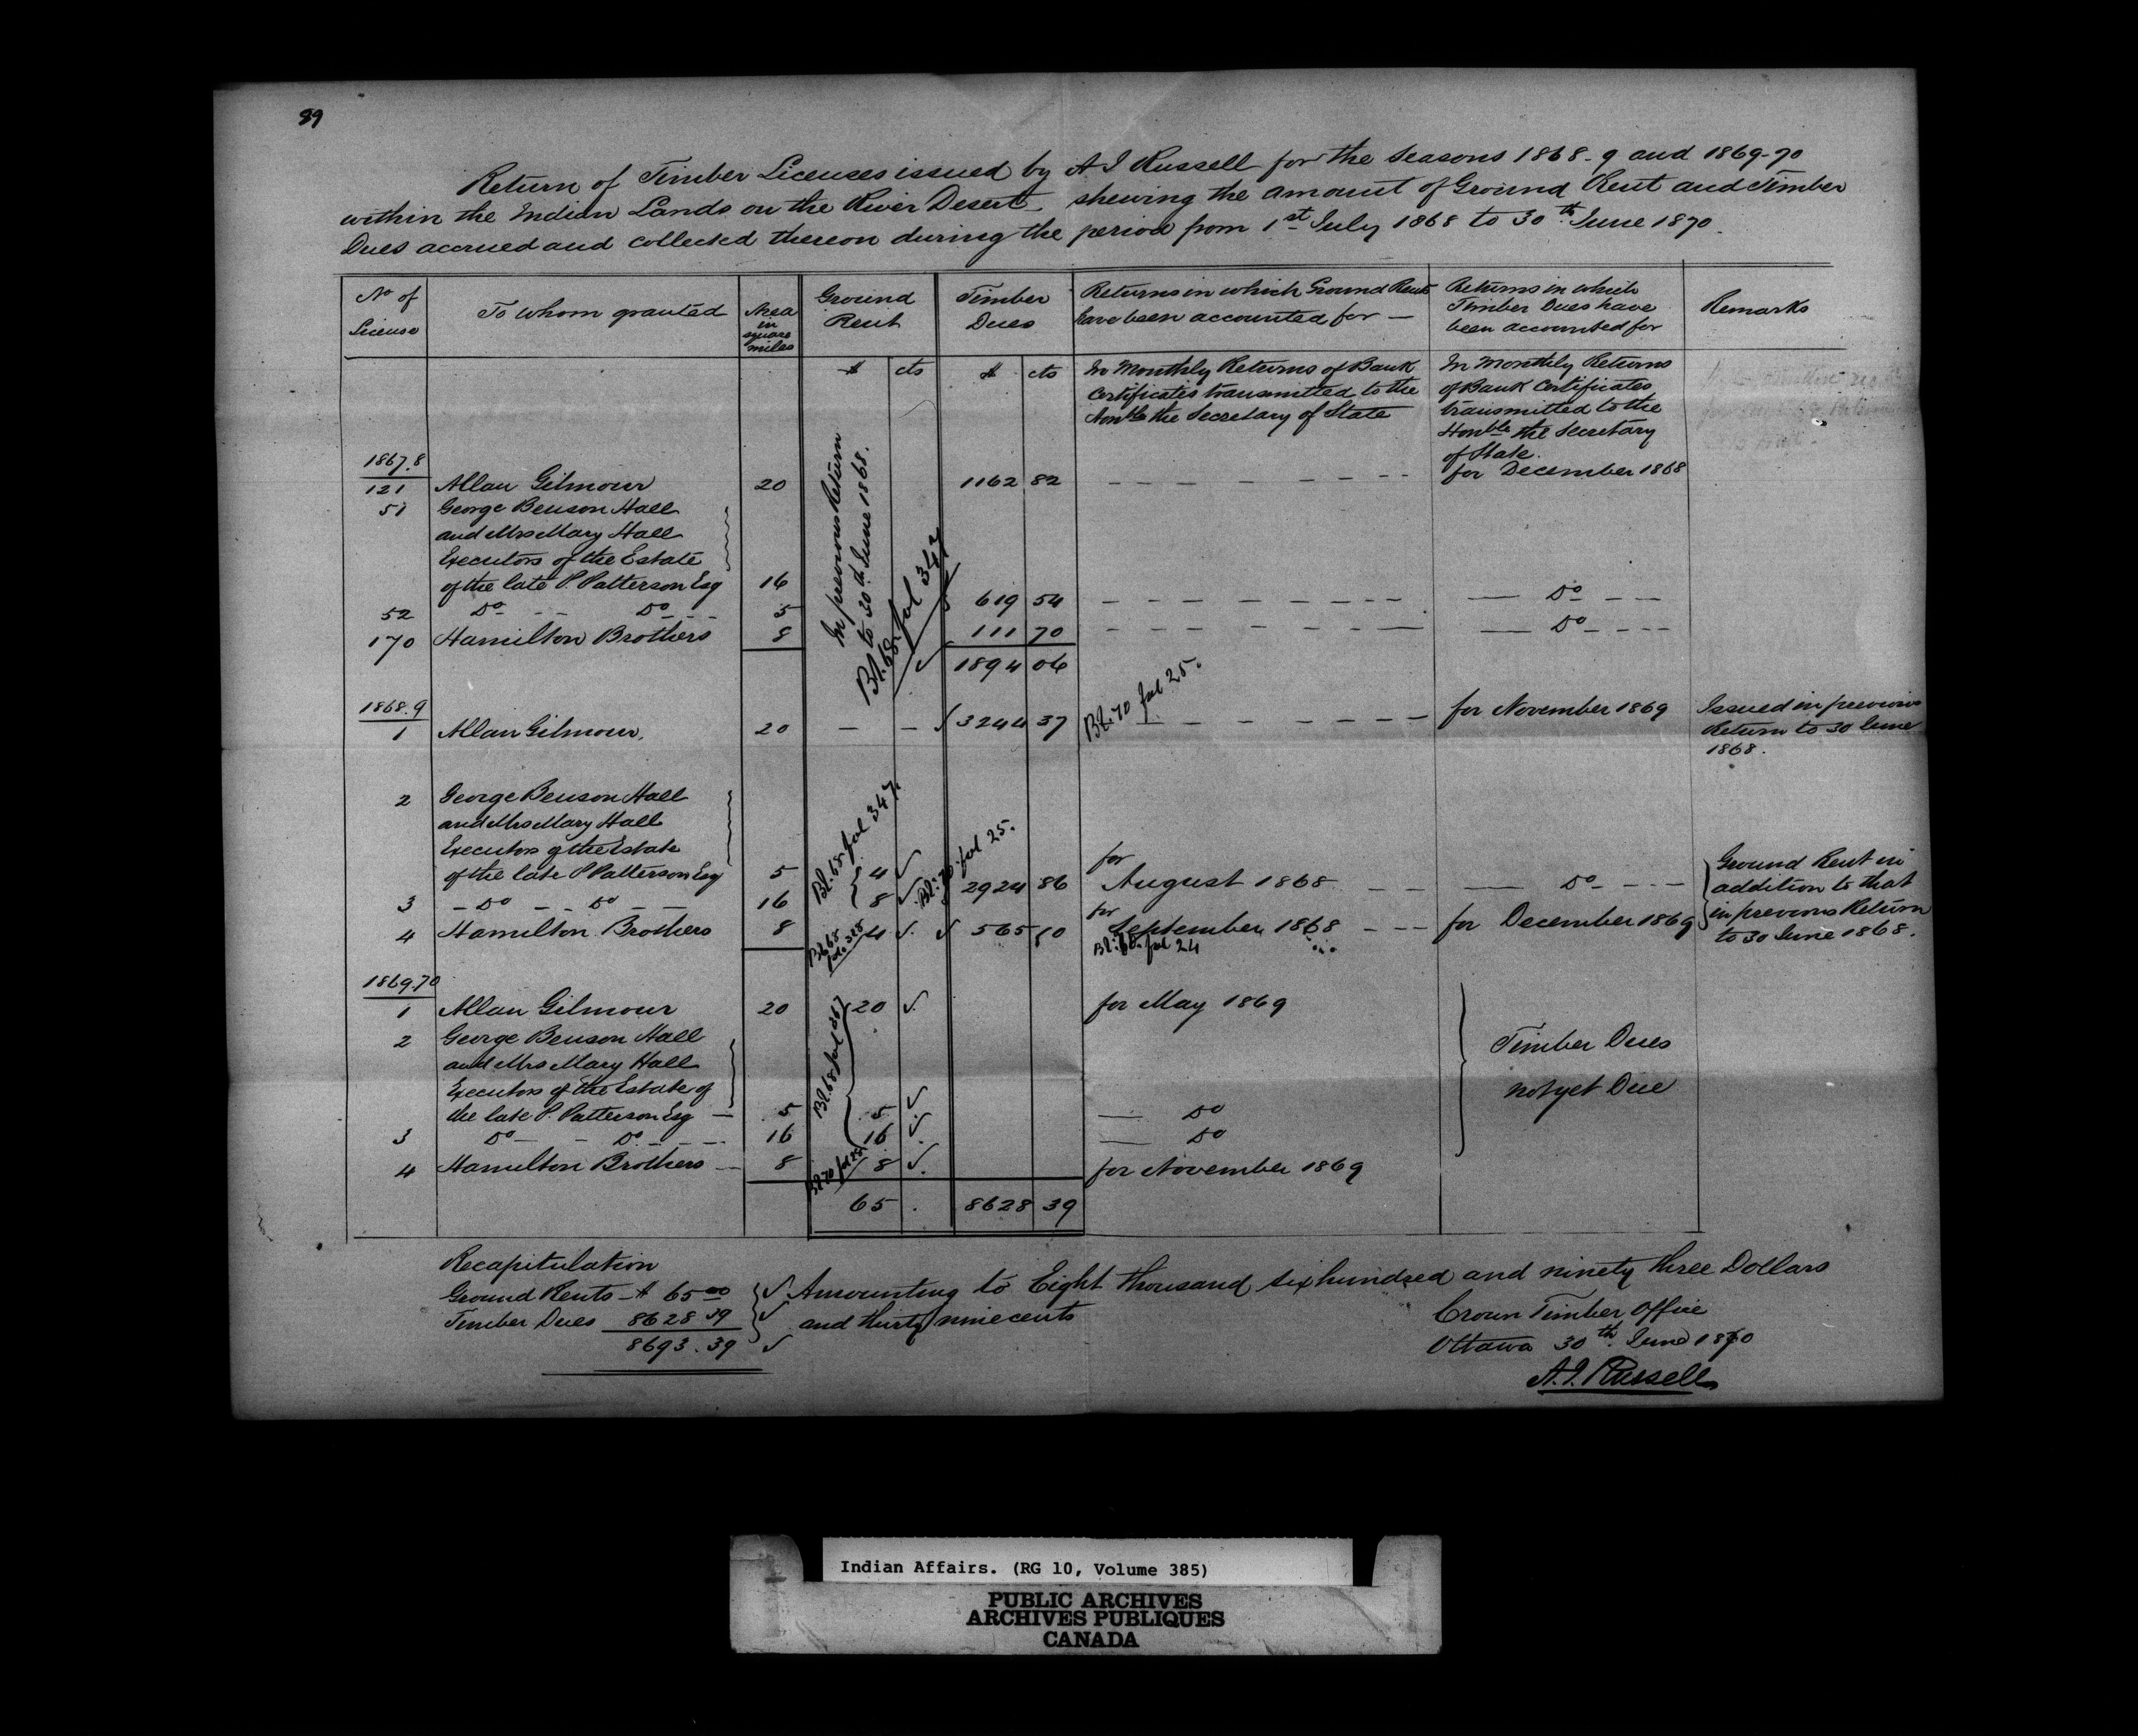 89
Return of Timber Licenses issued by A J Russell for the Seasons 1868-9 and 1869-70
within the Indian Lands on the River Desert shewing the amount of Ground Rent and Timber
Dues accrued and collected thereon during the period from 1st July 1868 to 30th June 1870.
No of License | To whom granted | Area in square miles | Ground Rent | Timber Dues | Returns in which Ground Rents have been accounted for — | Returns in which Timber Dues have been accounted for | Remarks
$ cts $ cts
In Monthly Returns of Bank
Certificates transmitted to the
Honble the Secretary of State
In Monthly Returns
of Bank Certificates
transmitted to the
Honble the Secretary
of State.
In previous Return
to 30th June 1868.
Bk: 68 fol 347
1867.8
121 Allan Gilmour 20 1162 82 for December 1868
51 George Benson Hall
and Mrs Mary Hall
Executors of the Estate
of the late P. Patterson Esq 16
52 Do Do 5 619 54 Do
170 Hamilton Brothers 8 111 70 Do
1894 06
1868.9
1 Allan Gilmour. 20 — — 3244 37 Bk: 70 fol 25. for November 1869 Issued in previous
Return to 30 June
1868.
2 George Benson Hall
and Mrs Mary Hall
Executors of the Estate
of the late P Patterson Esq 5 Bk: 68 fol 347. 4
3 Do Do 16 8 Bk: 70 fol 25. 2924 86 for August 1868 Do
4 Hamilton Brothers 8 Bk 68 fol. 328 4 565 10 for September 1868 for December 1869
Bk: 68. fol 24
Ground Rent in
addition to that
in previous Return
to 30 June 1868.
1869.70
1 Allan Gilmour 20 20 for May 1869
2 George Benson Hall
and Mrs Mary Hall
Executors of the Estate of
the late P. Patterson Esq — 5 5 Do
3 Do Do 16 16 Do
4 Hamilton Brothers — 8 Bk 70 8 for November 1869
Timber Dues
not yet Due
65 . 8628 39
Recapitulation
Ground Rents — $ 65 00
Timber Dues 8628 39
8693.39
Amounting to Eight thousand six hundred and ninety three Dollars
and thirty nine cents
Crown Timber Office
Ottawa 30th June 1870
A. J. Russell
Indian Affairs. (RG 10, Volume 385)
PUBLIC ARCHIVES
ARCHIVES PUBLIQUES
CANADA